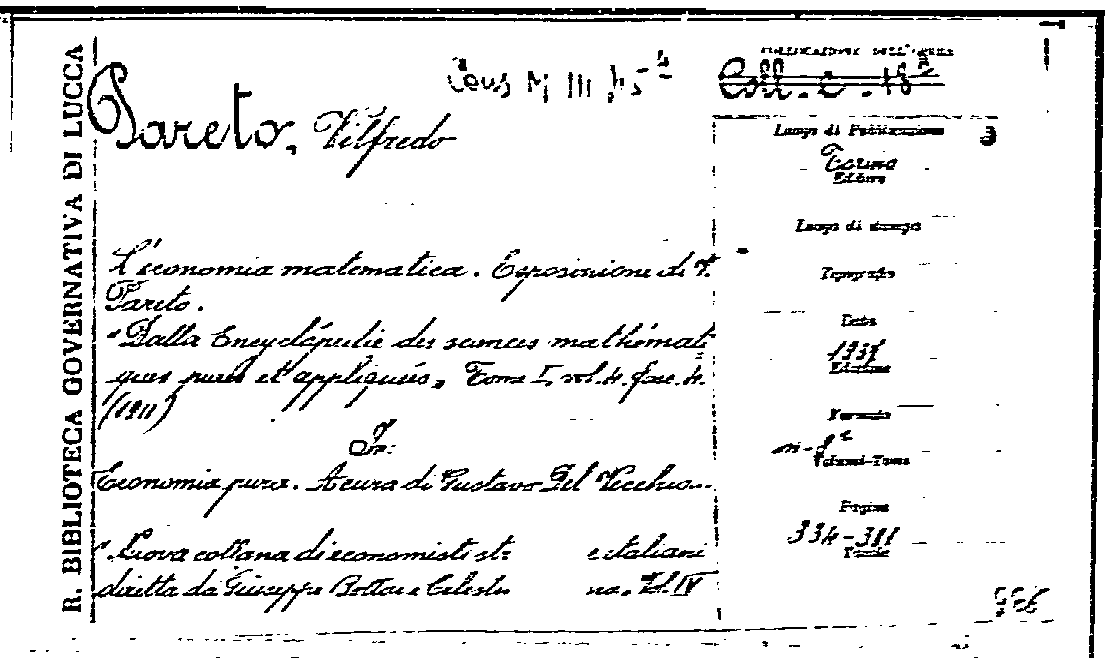 R. BIBLIOTECA GOVERNATIVA DI LUCCA
Pareto, Vilfredo
Cons M III 45 4
COLLOCAZIONE DELL'OPERA
Coll. C. 18 2
Luogo di Pubblicazione
Torino
Editore
Luogo di stampa
Tipografia
Data
1937
Edizione
Formato
in-8°
Volumi-Tomo
Pagine
334-381
Tavole
L'economia matematica. Esposizione di V.
Pareto.
"Dalla Encyclópedie des sciences mathémati
ques pures et appliqueés„ Tome I, vol. 4. fasc. 4.
(1911)
In:
Economia pura. A cura di Gustavo Del Vecchio
"Nuova collana di economisti st e italiani
diretta da Giuseppe Bottai e Celest na. Vol. IV